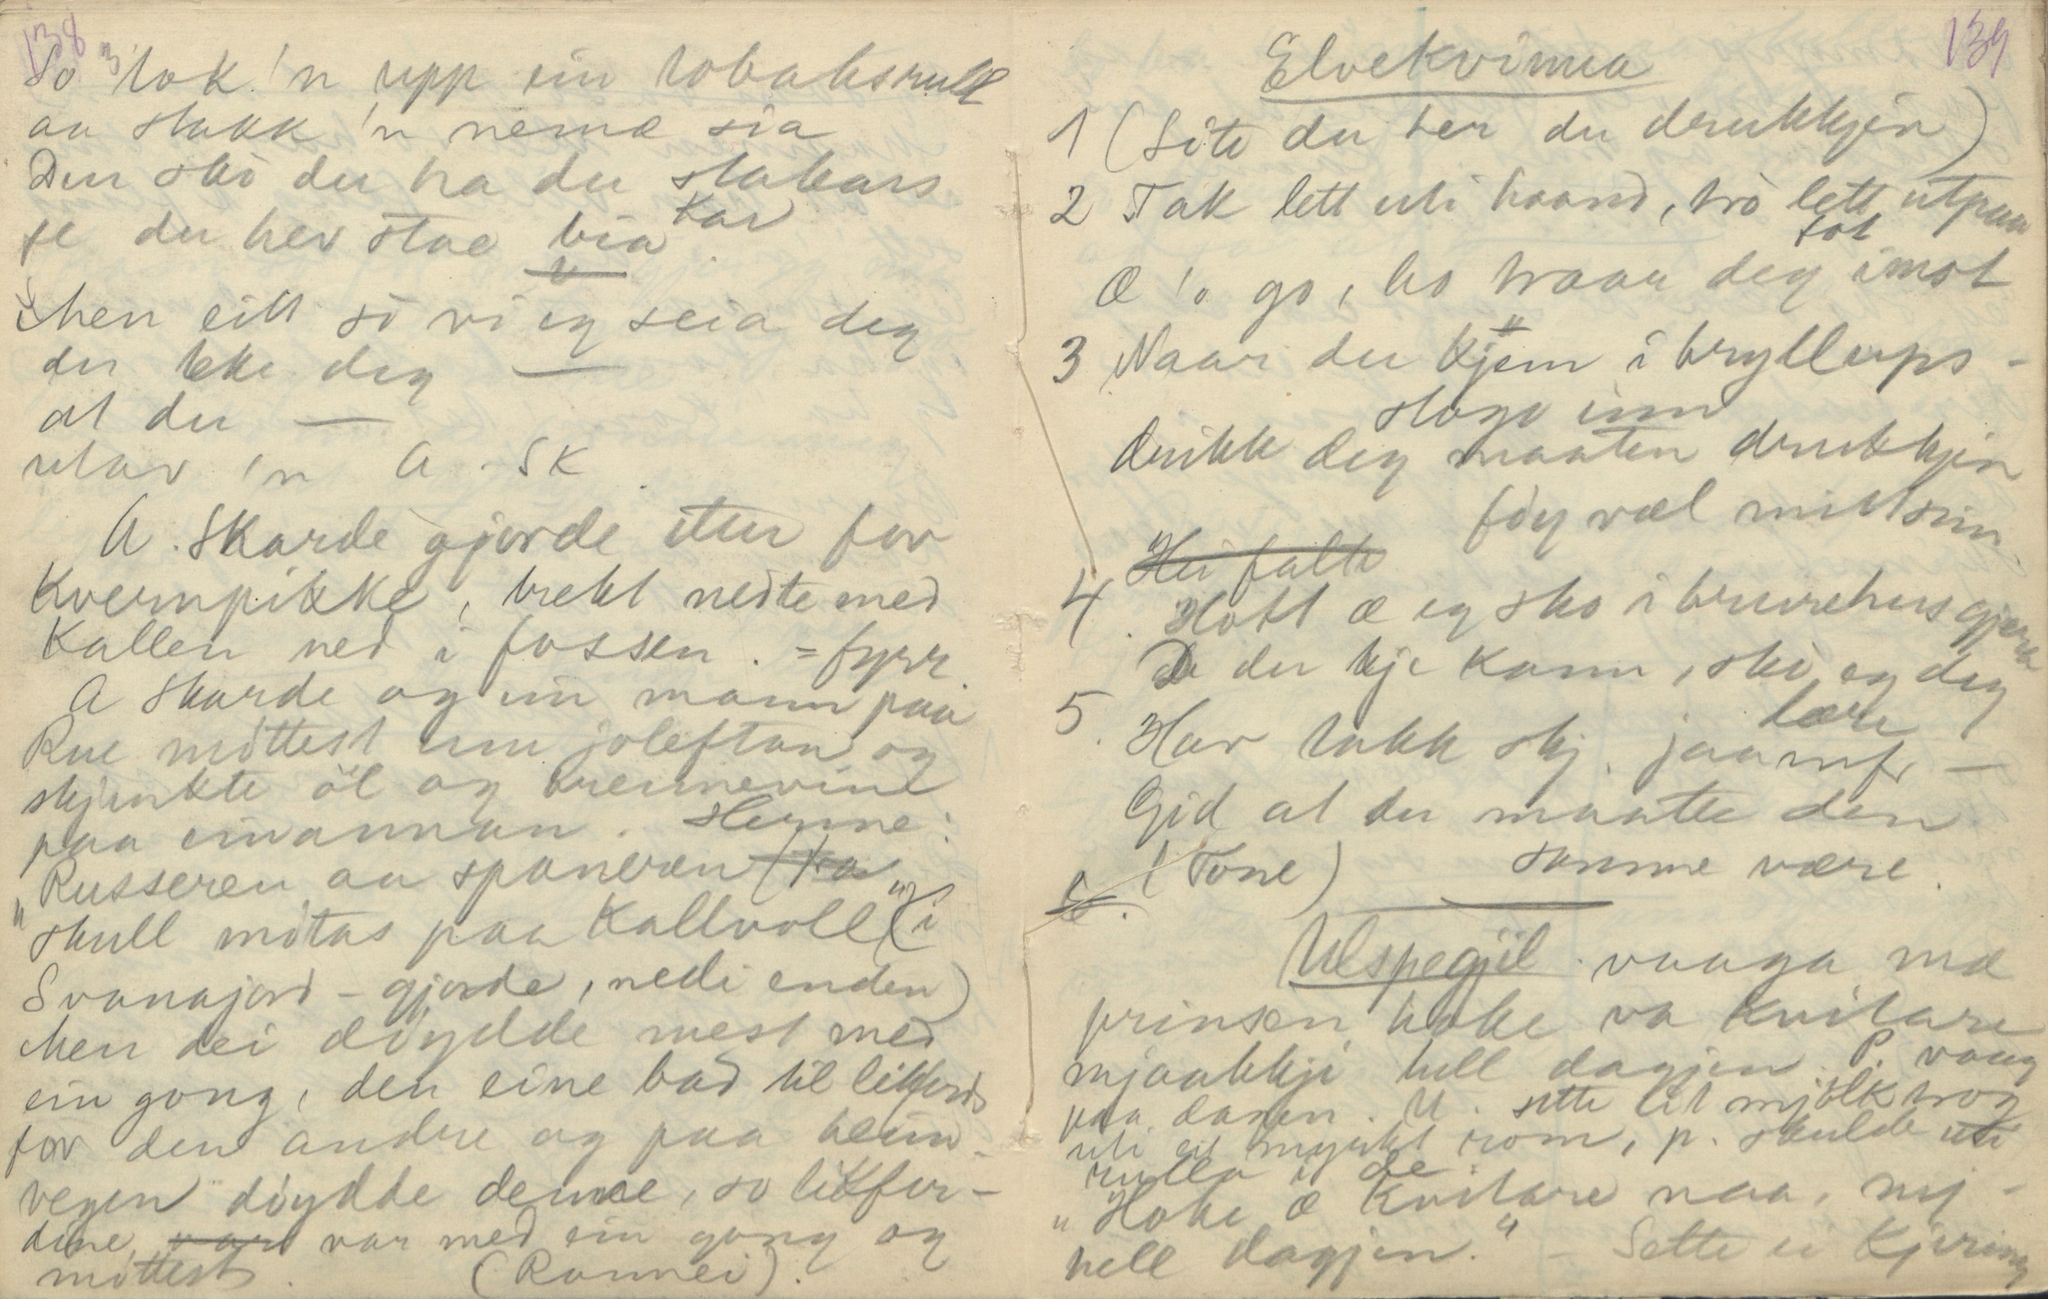 138
3
So tok 'n upp ein tobaksrull
aa stakk 'n neme sia
Den ski du ha du stakars
kar
fe du hev stae bia
Men eitt so vi eg seia deg
du teke deg —
at du —
utav 'n A. Sk
A. Skarde gjorde itur for
Kvernpikke, trekt nedte med
Kallen ned i fossen. = fyrr
A Skarde og ein mann paa
Rue möttest um joleftan og
skjinkte öl og brennevine
paa einannan. Henne:
"Russeren aa spaneren (ha
skull mötas paa Kallvoll" (i
Svanajord - gjorde, nedi enden)
Men dei döydde mest med
ein gong, den eine bad til likferd
for den andre og paa heim-
vegen döydde denne, so likfer-
dine var var med ein gong og
möttest. (Rannei).
139
Elvekvinna
1 (Site du her du drukkjin)
2 Tak lett uti haand, tro lett utpaa
fot
Æ 'o go, ho traar deg imot
3 Naar du kjem i bryllups-
stogo inn
drikk deg maaten drukkjin
föy væl mitt sinn
Hei falte
4. Hott æ eg sko i brurehus gjera
De du kje kann, ski eg deg
lære
5. Hav takk skj. jaamfr —
Gid at du maatte den
samme være.
6. (Tone)
Ulspegjil vaaga mæ
prinsen hoke va kvitare
mjaakkji hell dagjen. P. vaag
paa dagen. U. sette eit mjölktrog
uti eit myrkt rom, p. skulde uti
rulla i de
"Hoke æ kvitare naa, mj-
hell dagjen." — Sette ei kjering